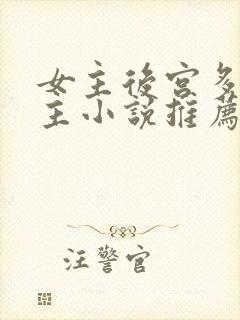 女主後宮多
主小說推薦
汪警官